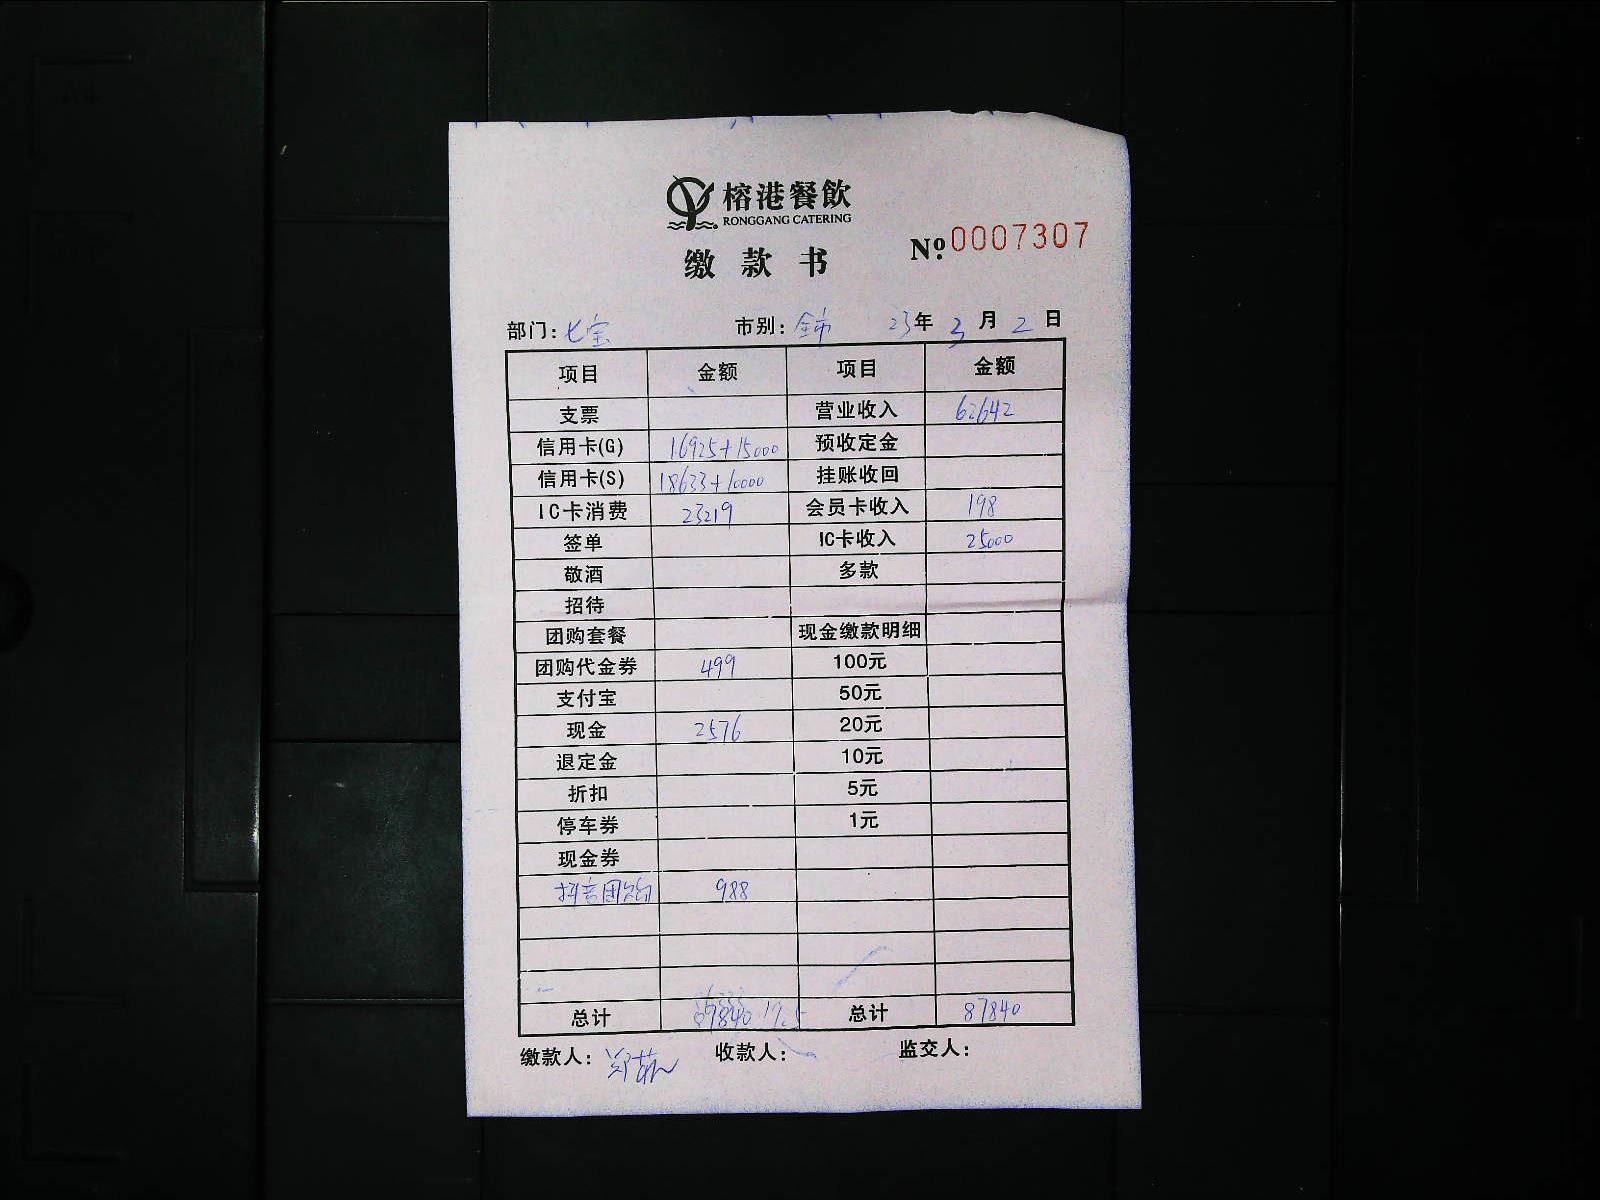 榕港餐飲
RONGGANG CATERING
缴款书
№ 0007307
部门: 七宝 市别: 全市 23年 3月 2日
项目 金额 项目 金额
支票 营业收入 62642
信用卡(G) 16925+15000 预收定金
信用卡(S) 18633+10000 挂账收回
IC卡消费 23219 会员卡收入 198
签单 IC卡收入 25000
敬酒 多款
招待
团购套餐 现金缴款明细
团购代金券 499 100元
支付宝 50元
现金 2576 20元
退定金 10元
折扣 5元
停车券 1元
现金券
抖音团购 988
总计 87840 总计 87840
缴款人: 收款人: 监交人: